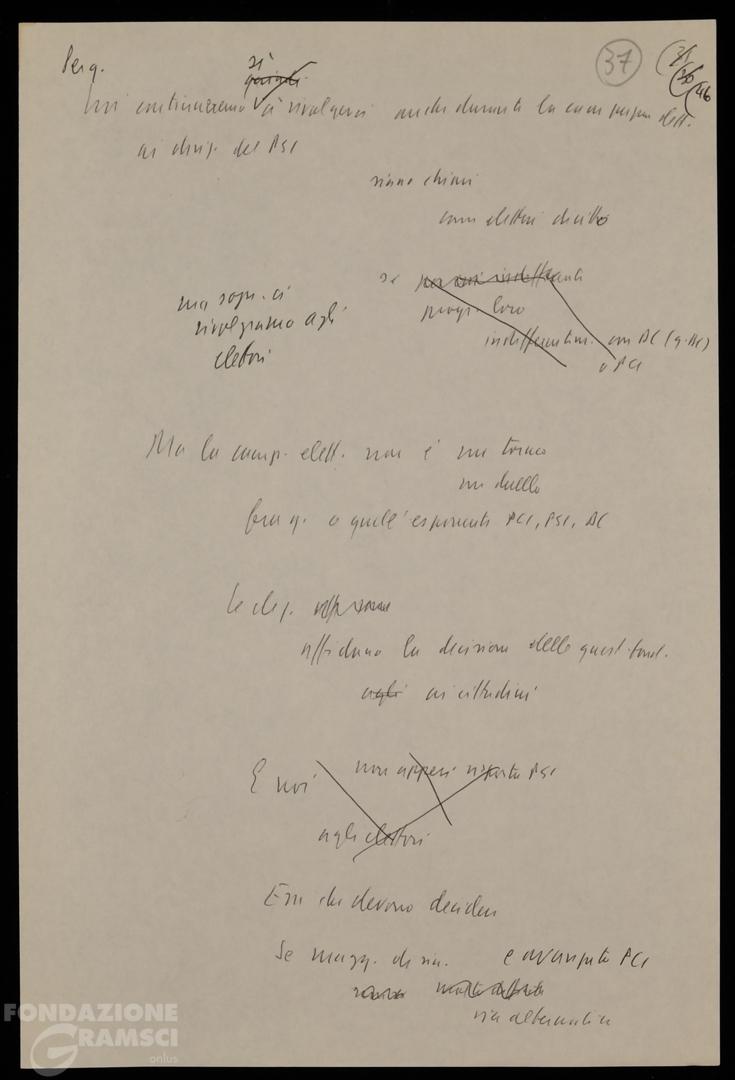 Perq.
37
36
46
sì
Noi continueremo a rivolgerci anche durante la campagna elett.
ai dirig. del PSI
siano chiari
con elettori
se
progr. loro
indifferentem. con DC (q. DC)
o PCI
ma sopr. ci
rivolgiamo agli
elettori
Ma la camp. elett. non è un torneo
un duello
fra q. o quell'esponente PCI, PSI, DC
Le eleg.
affidano la decisione delle quest. fond.
agli ai cittadini
E noi
non appesi risposta PSI
agli elettori
Essi che devono decidere
Se magg. di sin. e avanzata PCI
sia alternativa
FONDAZIONE
GRAMSCI
onlus